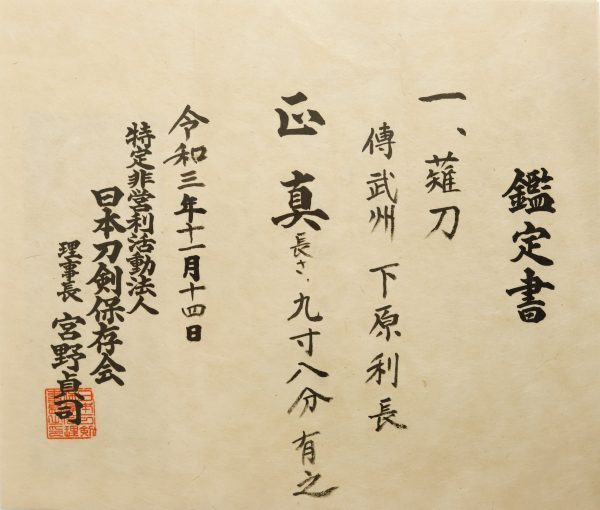 鑑定書
一、薙刀
傳武州 下原利長
正真 長さ、九寸八分有之
令和三年十一月十四日
特定非営利活動法人
日本刀剣保存会
理事長 宮野貞司